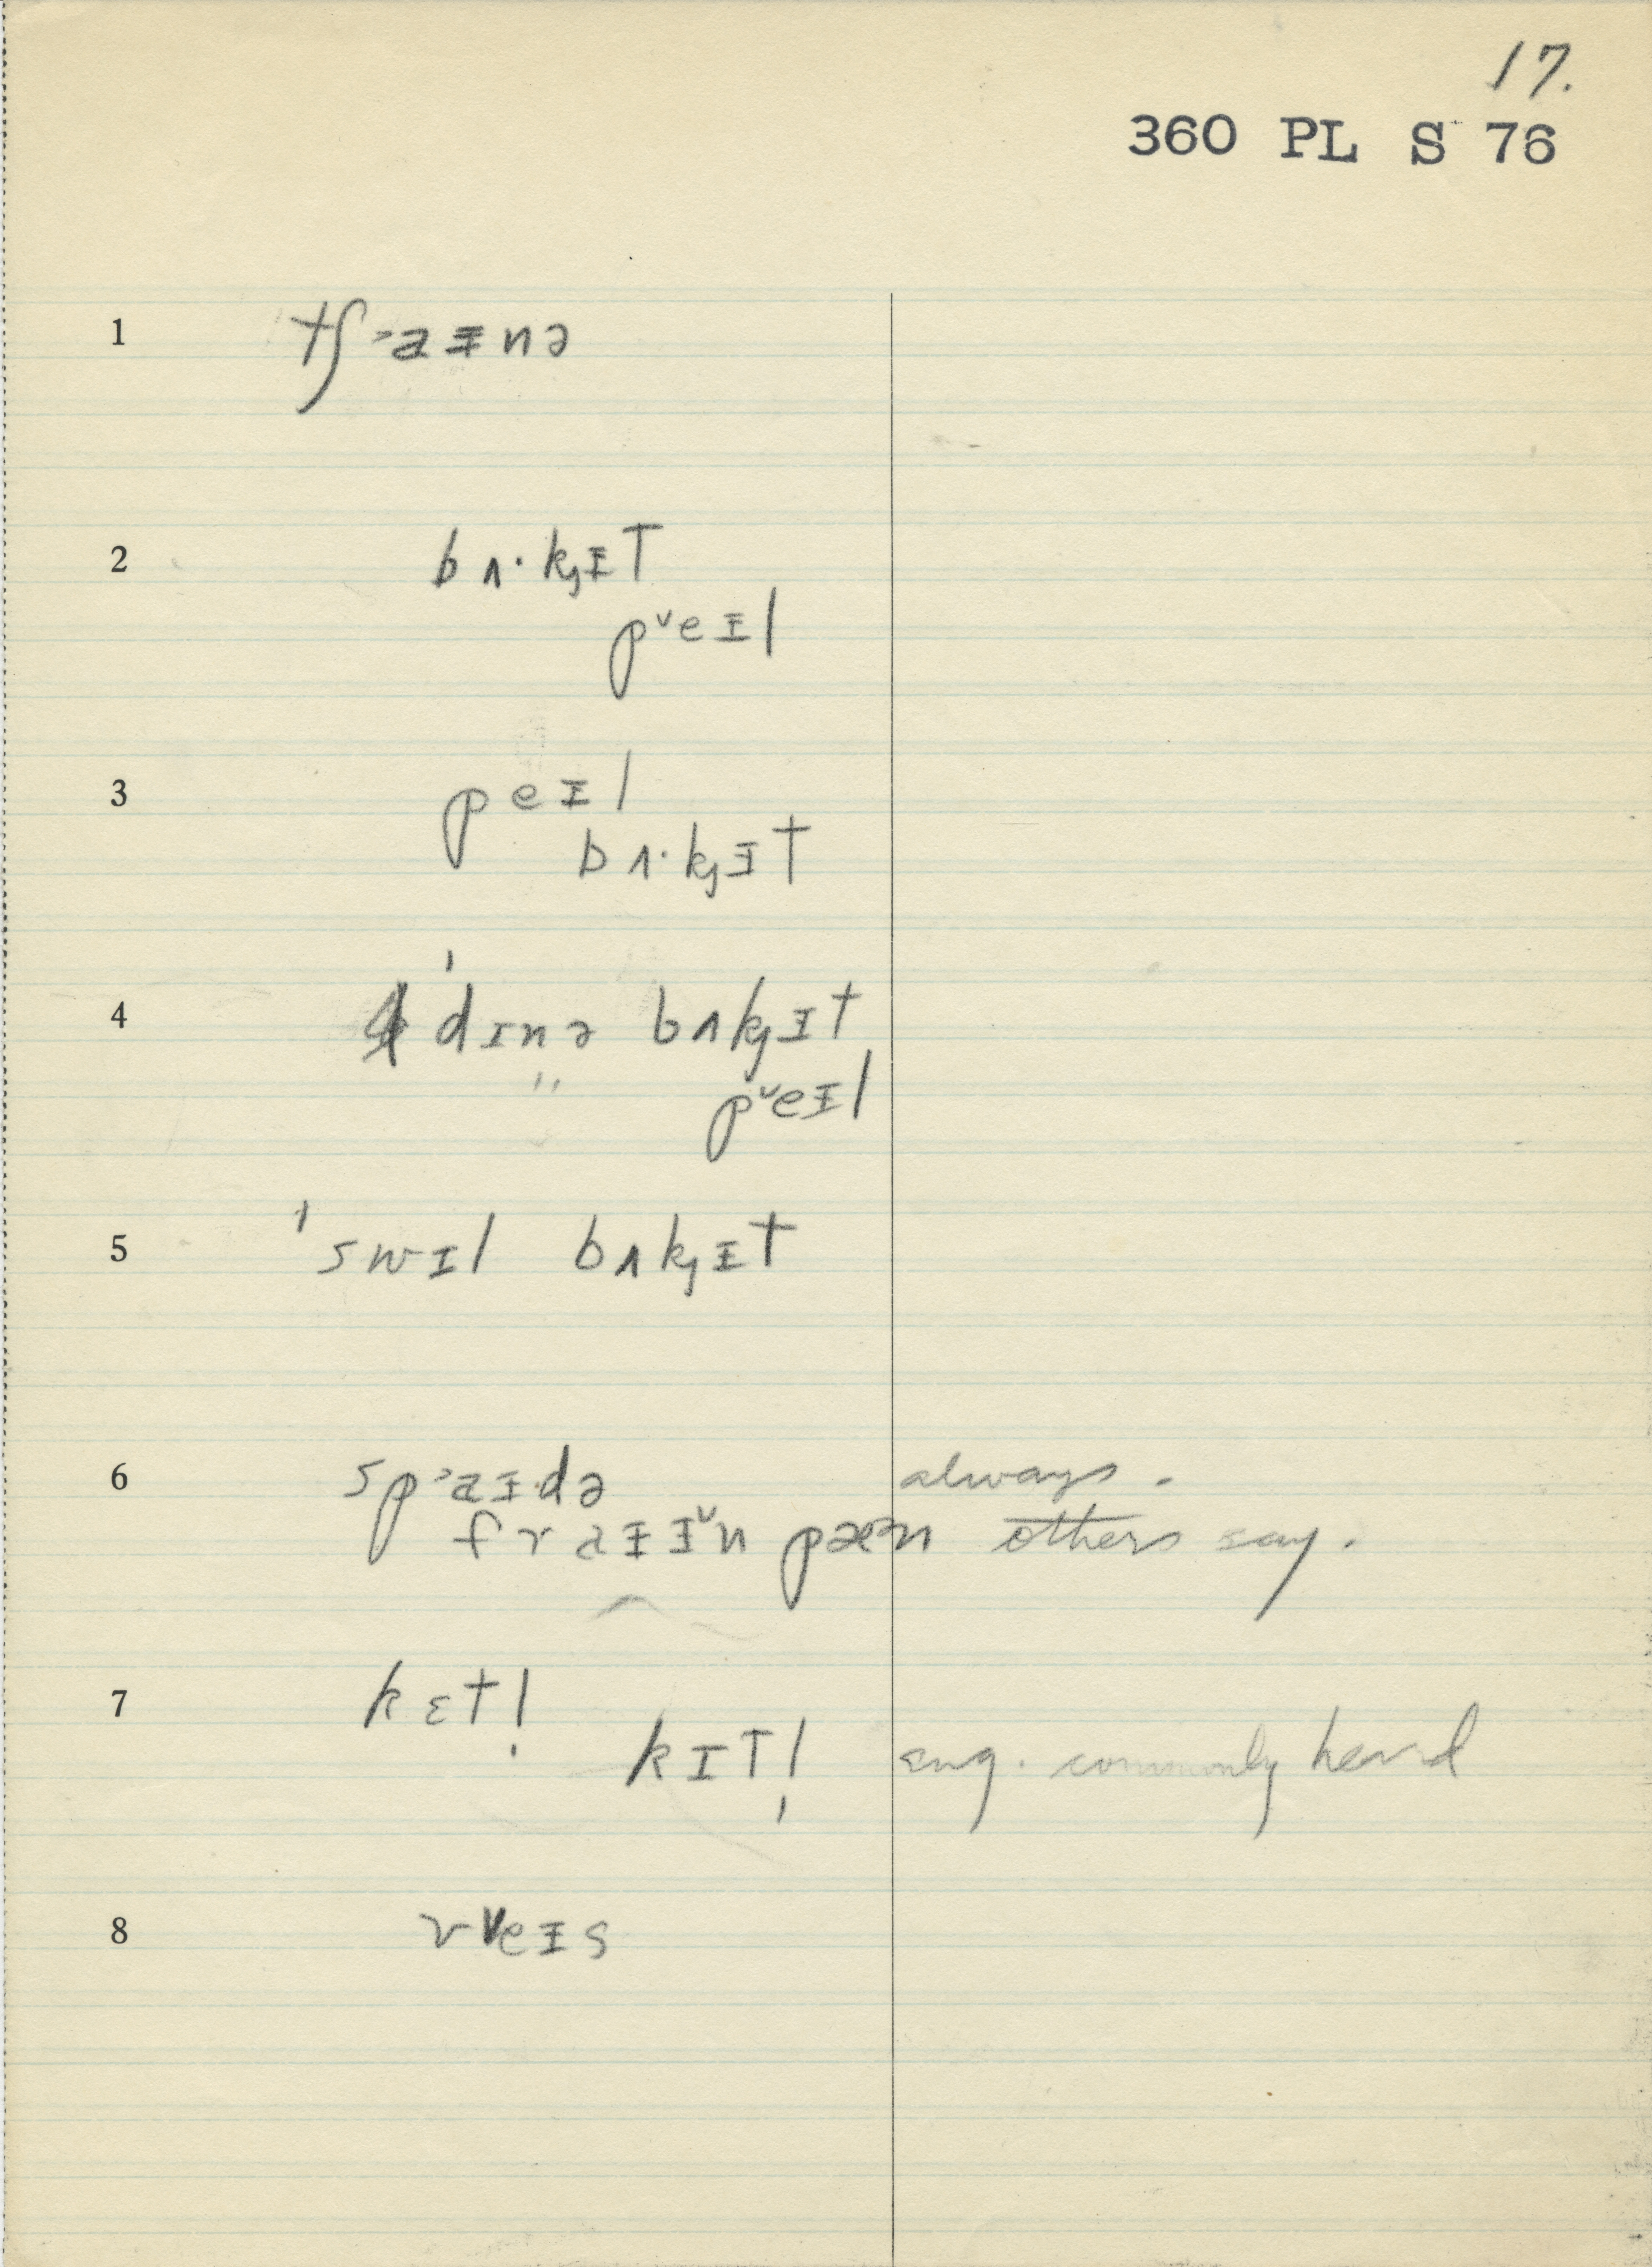 17.
360 PL S 76
1 tʃ˃aᵻnə
2 bʌ·kɟᵻt
p˅eᵻl
3 peᵻl
bʌ·kɟᵻt
4 ˈdɪnə bʌkɟᵻt
" p˅eᵻl
5 ˈswɪl bʌkɟᵻt
6 sp˃aᵻdə always.
fraᵻᵻ˅n pæ˃n others say.
7 kɛt!
kɪt! eng. commonly heard
8 r˅eᵻs